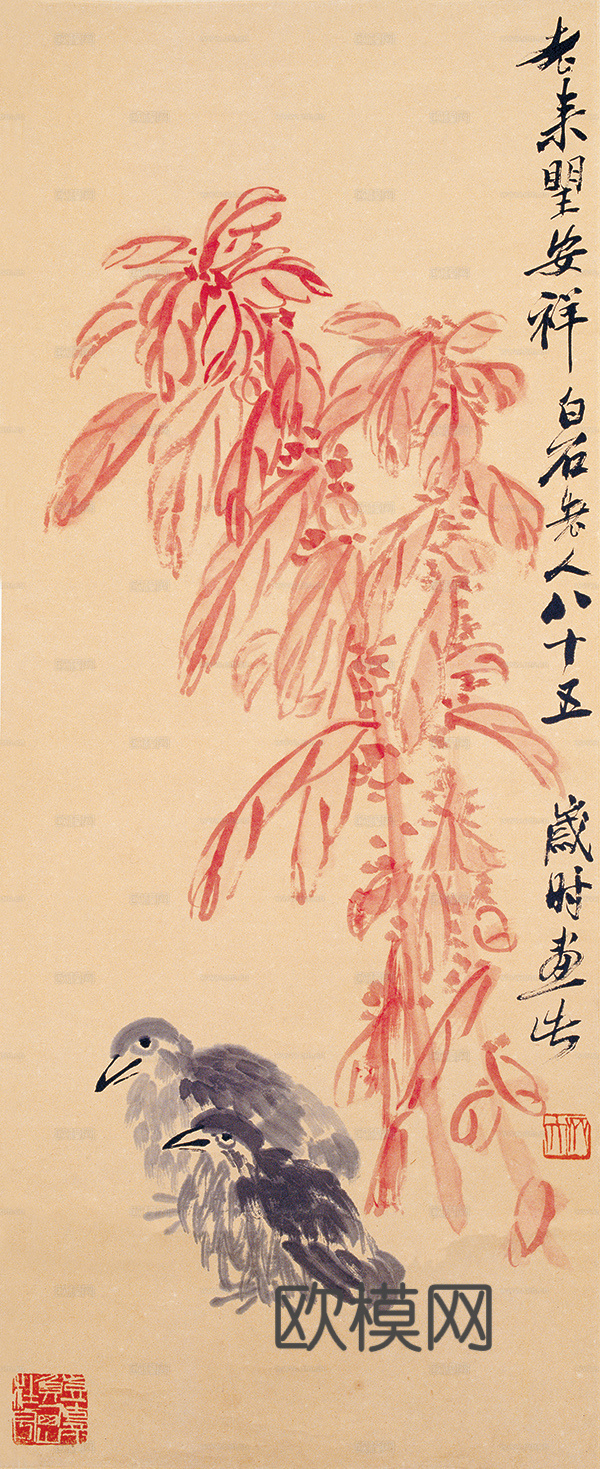 老来朢安祥
白石老人八十五
歲时畫
欧模网